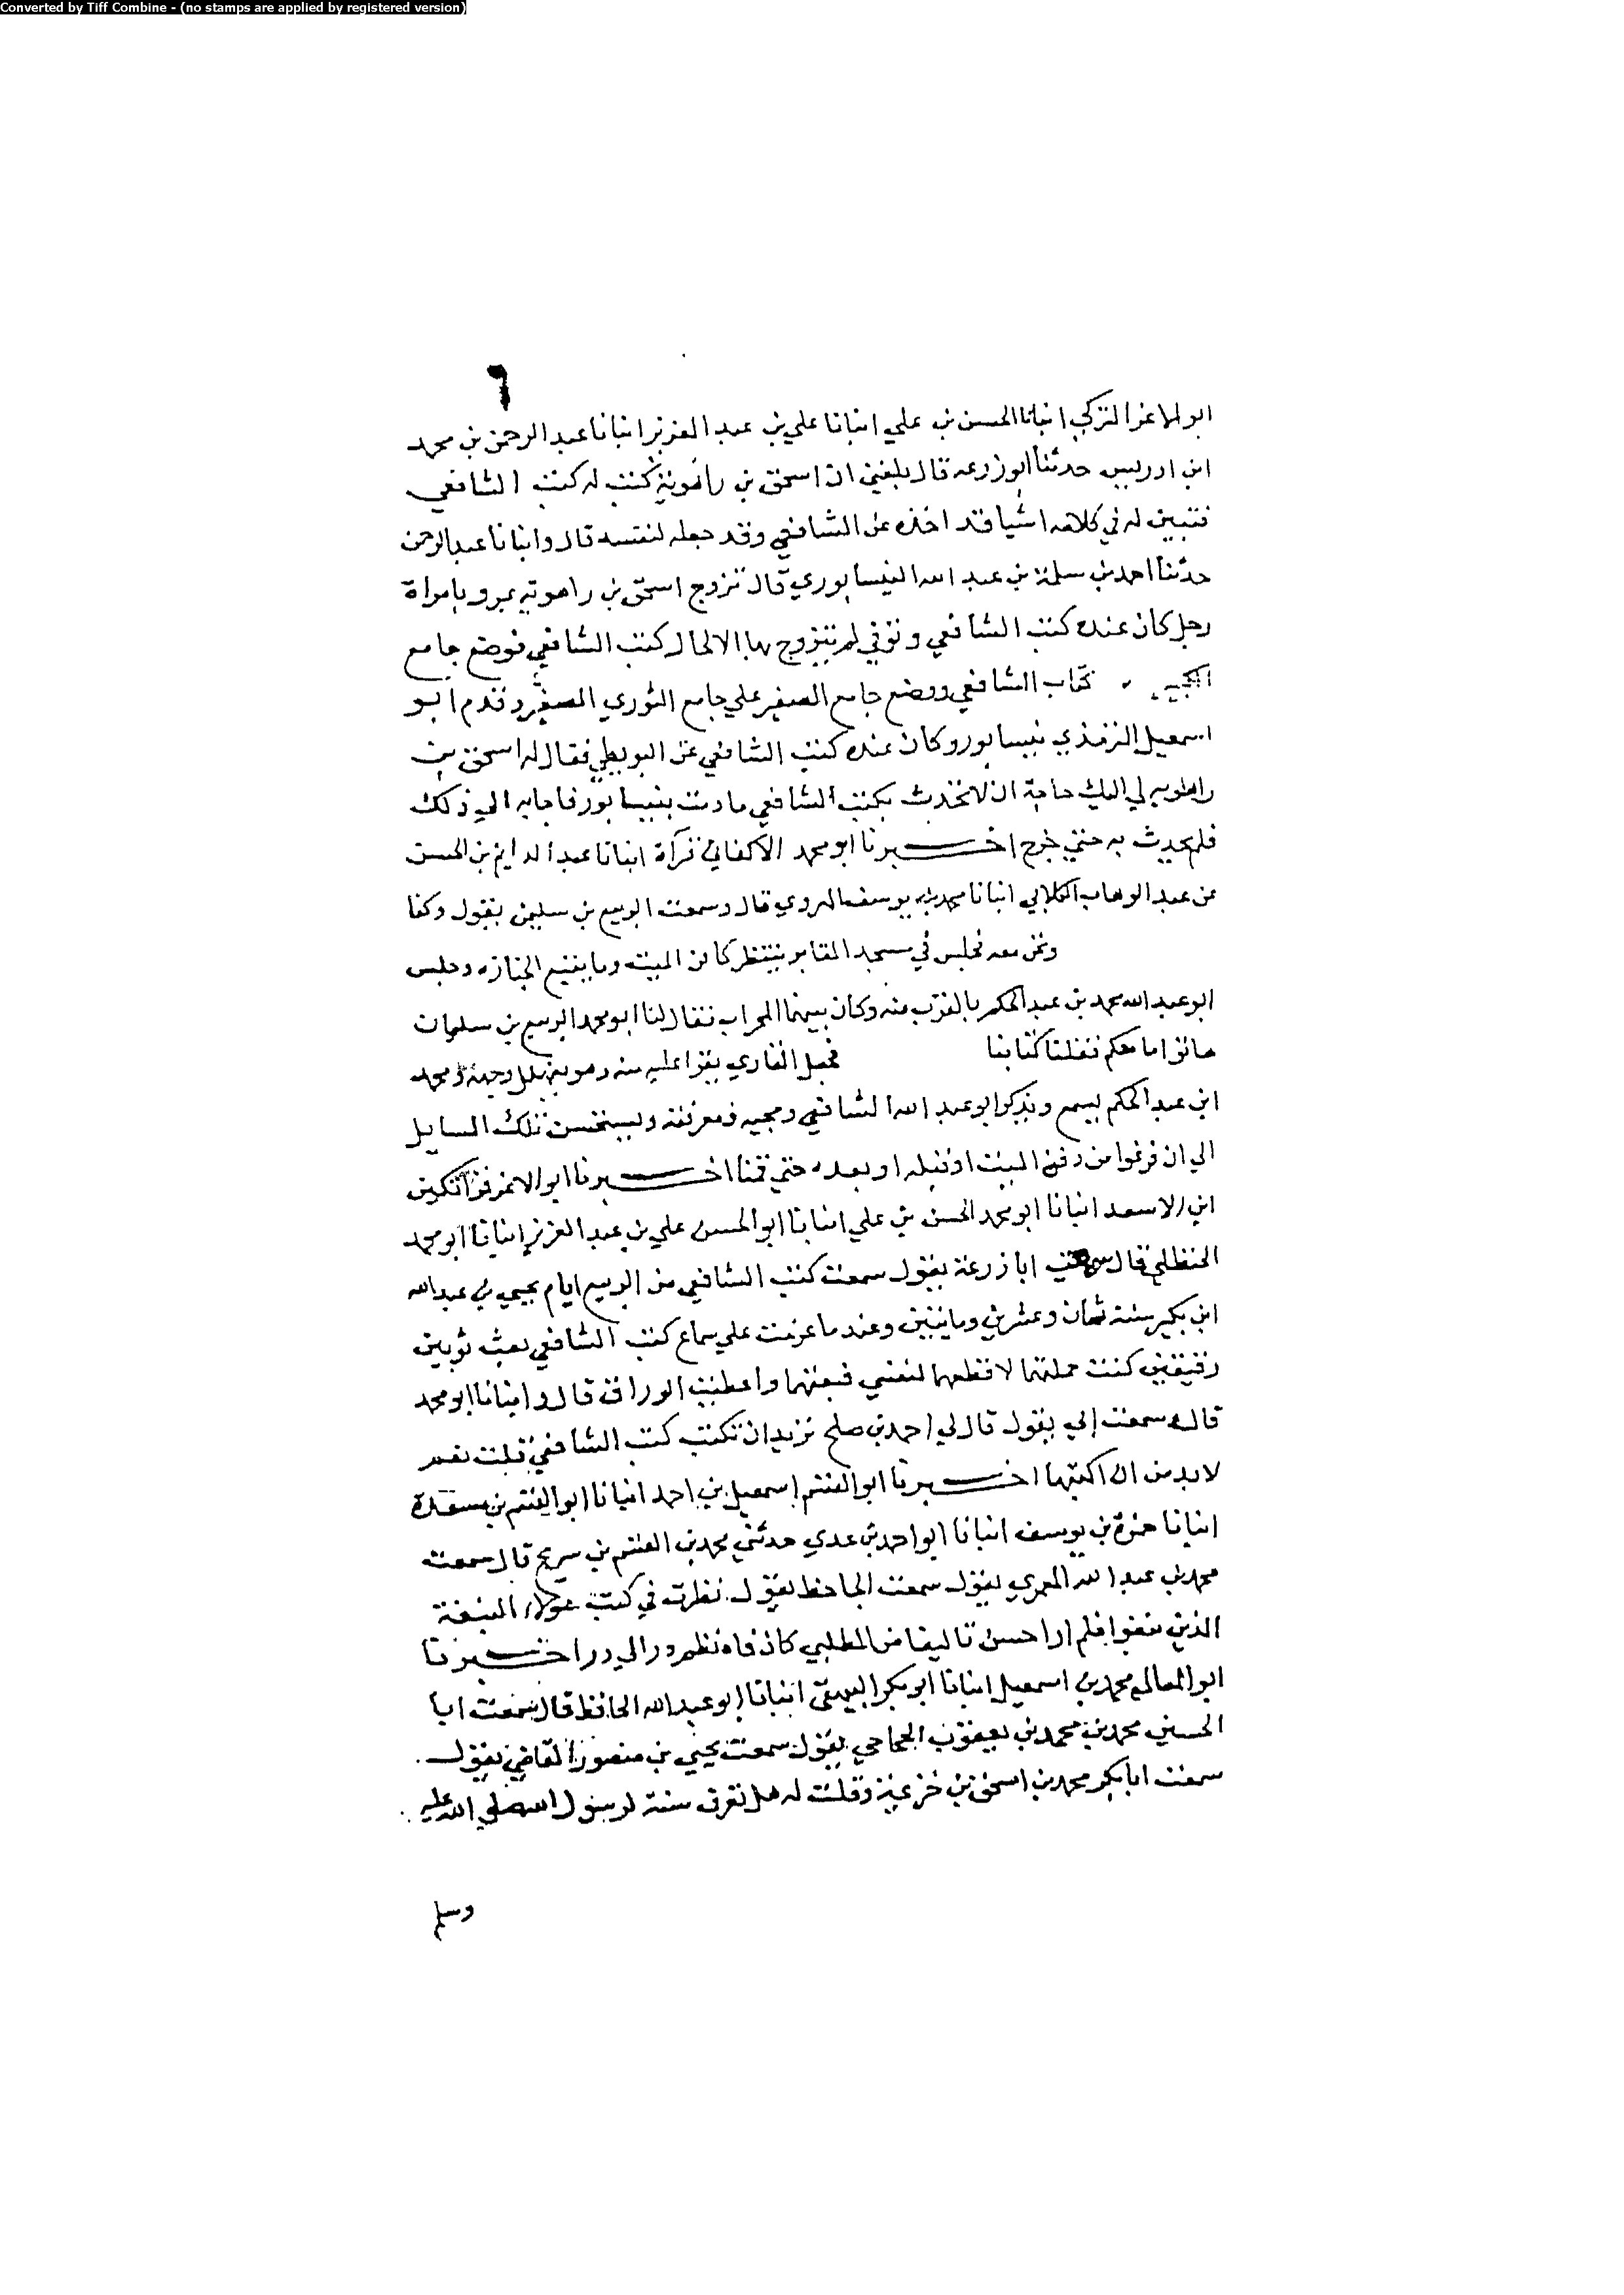 Converted by Tiff Combine - (no stamps are applied by registered version)
٦
ابو الاعز التركي انبانا الحسن بن علي انبانا علي بن عبد العزيز انبانا عبد الرحمن بن محمد
ابن ادريس حدثنا ابو زرعه قال بلغني ان اسحق بن راهويه كتبت له كتب الشافعي
فتبين له في كلامه اشيا قد اخذه عن الشافعي وقد جعله لنفسه قال وانبانا عبد الرحمن
حدثنا احمد بن سلمة بن عبد الله النيسابوري قال تزوج اسحق بن راهويه بمرو بامراة
رجل كان عنده كتب الشافعي وتوفي لم يتزوج بها الا لحال كتب الشافعي فوضع جامع
الكبير كتاب الشافعي ووضع جامع الصغير علي جامع الثوري الصغير وقدم ابو
اسمعيل الترمذي نيسابور وكان عنده كتب الشافعي عن البويطي فقال له اسحق بن
راهويه لي اليك حاجة ان لا تحدث بكتب الشافعي ما دمت بنيسابور فاجابه الي ذلك
فلم يحدث به حتي خرج اخبرنا ابو محمد الاكفاني قراة انبانا عبد الدايم بن الحسن
عن عبد الوهاب الكلابي انبانا محمد بن يوسف الهروي قال وسمعت الربيع بن سليمن يقول وكنا
ونحن معه نجلس في مسجد المقابر ينتظر كا من الميت وما يتبع الجنازه وجلس
ابو عبد الله محمد بن عبد الحكم بالقرب منه وكان بينهما المحراب فقال لنا ابو محمد الربيع بن سليمان
هاتوا ما معكم فنقلنا كتابنا فجعل القاري يقرا عليه منه وهو يتهلل وجهه ومحمد
ابن عبد الحكم يسمع ويذكر ابو عبد الله الشافعي ومحبه ومعرفته ويستحسن تلك المسايل
الي ان فرغوا من دفن الميت او قبله او بعده حتي قمنا اخبرنا ابو الاعز قراتكين
ابن الاسعد انبانا ابو محمد الحسن بن علي انبانا ابو الحسن علي بن عبد العزيز انبانا ابو محمد
الحنظلي قال سمعت ابا زرعة يقول سمعت كتب الشافعي من الربيع ايام يحيي بن عبد الله
ابن بكير سنة ثمان وعشرين وماتين وعند ما عزمت علي سماع كتب الشافعي بعت ثوبين
رقيقين كنت حملتها لاقطعهما لنفسي فبعتهما واعطيت الوراق قال وانبانا ابو محمد
قال سمعت ابي يقول قال لي احمد بن صلح تريد ان تكتب كتب الشافعي قلت نعم
لا بد من ان اكتبها اخبرنا ابو القسم اسمعيل بن احمد انبانا ابو القسم بن مسعدة
انبانا حمزة بن يوسف انبانا ابو احمد بن عدي حدثني محمد بن القسم بن سريج قال سمعت
محمد بن عبد الله المعمري يقول سمعت الجاحظ يقول نظرت في كتب هولاء النبغة
الذين نبغوا فلم ار احسن تاليفا من المطلبي كان فاه نظم درا الي در اخبرنا
ابو المعالي محمد بن اسمعيل انبانا ابو بكر البيهقي انبانا ابو عبد الله الحافظ قال سمعت ابا
الحسين محمد بن محمد بن يعقوب الحجاجي يقول سمعت يحيي بن منصور القاضي يقول
سمعت ابا بكر محمد بن اسحق بن خزيمة وقلت له هل تعرف سنة لرسول الله صلي الله عليه
وسلم